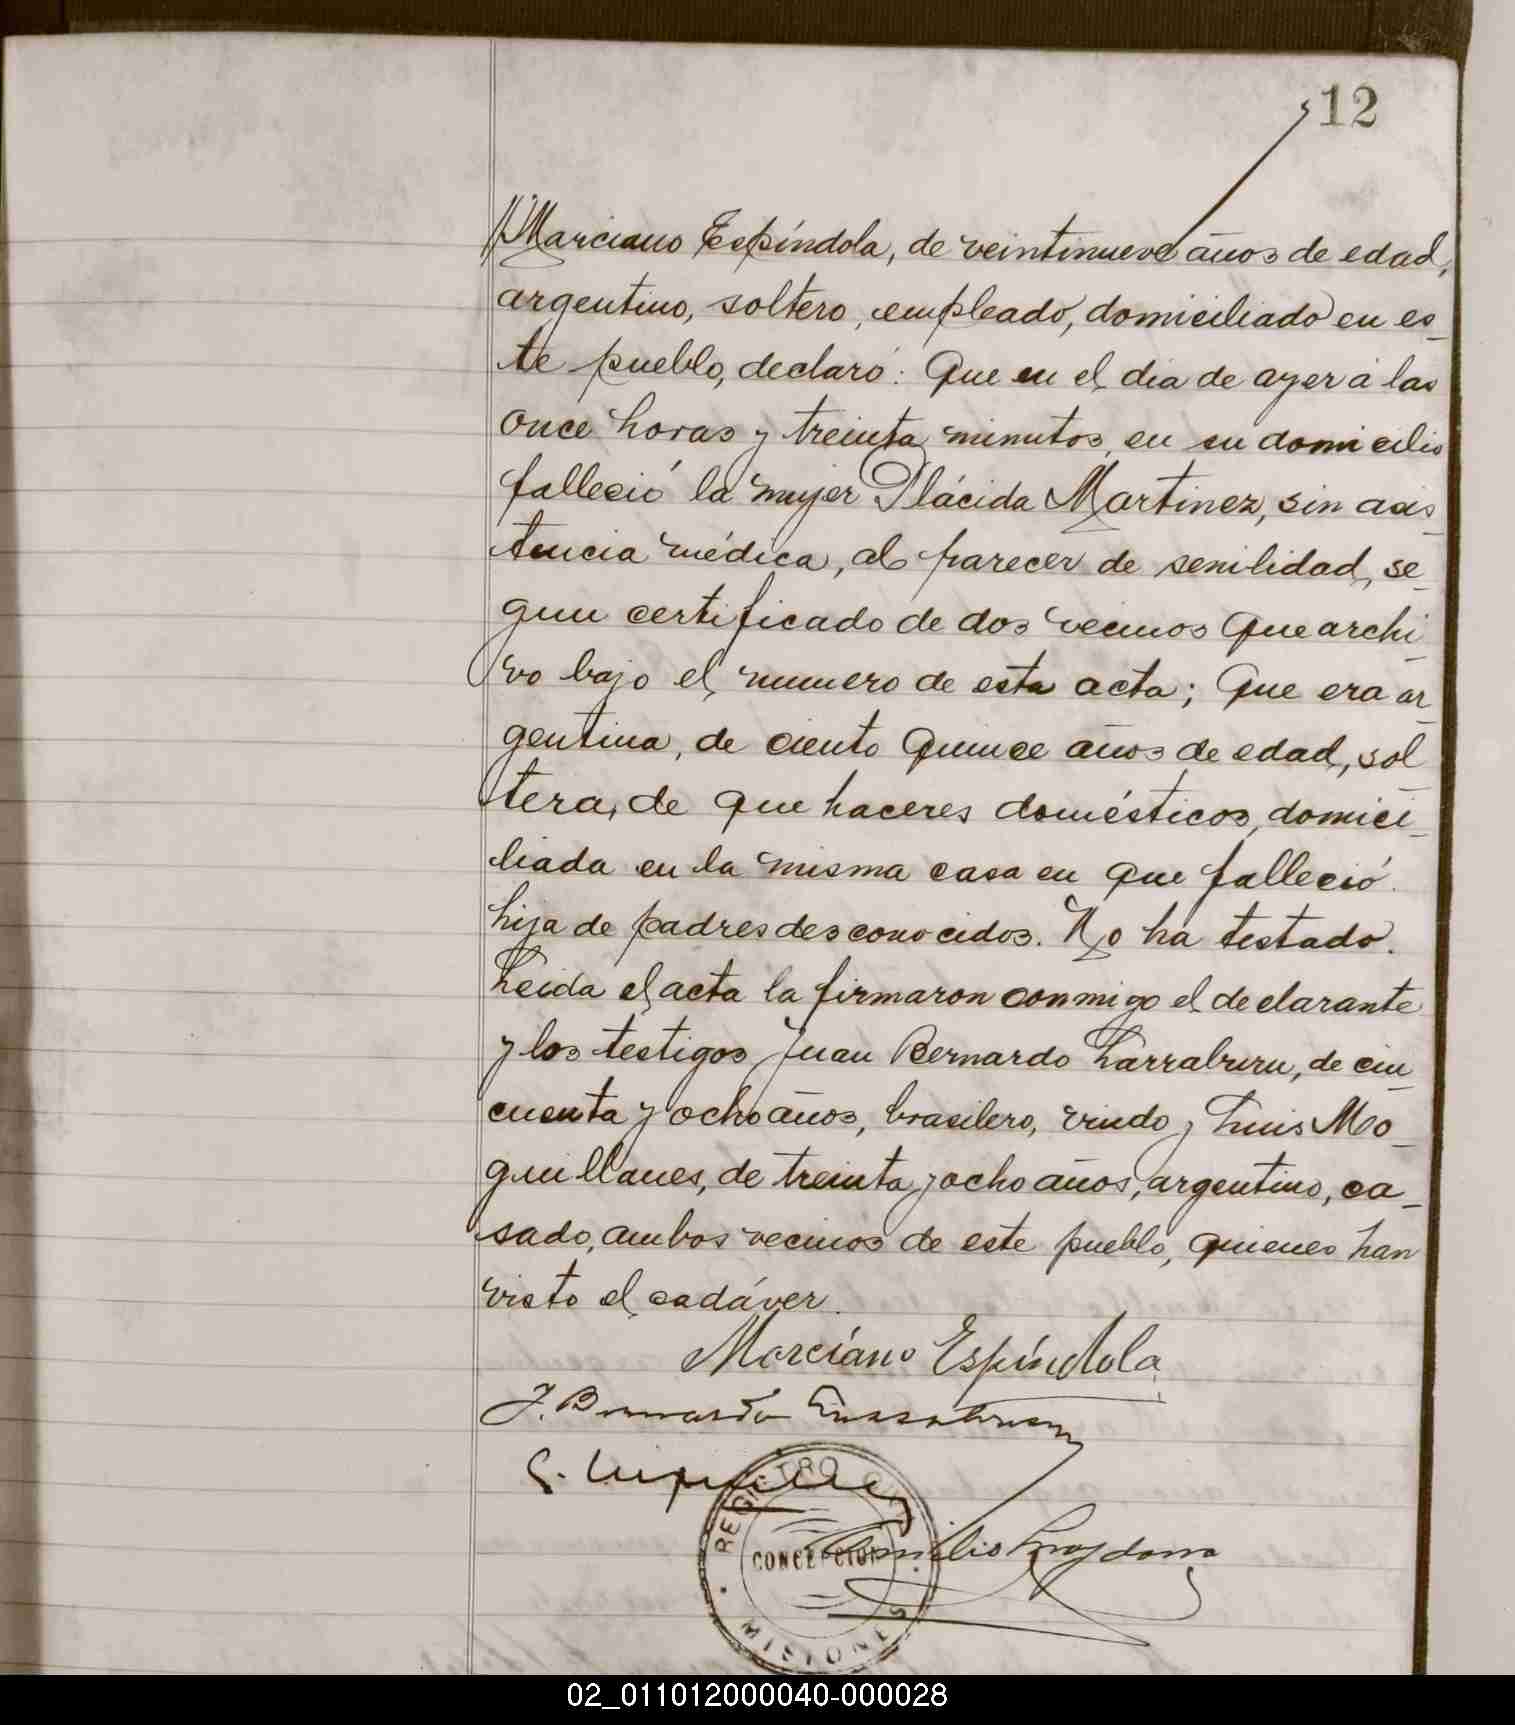 12
//Marciano Espíndola, de veintinueve años de edad,
argentino, soltero, empleado, domiciliado en es-
te pueblo, declaró: Que en el dia de ayer á las
once horas y treinta minutos, en su domicilio
falleció la mujer Plácida Martinez, sin asis-
tencia médica, al parecer de senilidad, se-
gun certificado de dos vecinos que archi-
vo bajo el numero de esta acta; Que era ar-
gentina, de ciento quince años de edad, sol-
tera, de que haceres domésticos, domici-
liada en la misma casa en que falleció.
hija de padres desconocidos. No ha testado.
Leida el acta la firmaron conmigo el declarante
y los testigos Juan Bernardo Larraburu, de cin-
cuenta y ocho años, brasilero, viudo y Luis Mo-
guillanes, de treinta y ocho años, argentino, ca-
sado, ambos vecinos de este pueblo, quienes han
visto el cadáver.
Marciáno Espíndola
J. Bernardo Larraburu
REGISTRO CIVIL
CONCEPCION
MISIONES
02_011012000040-000028